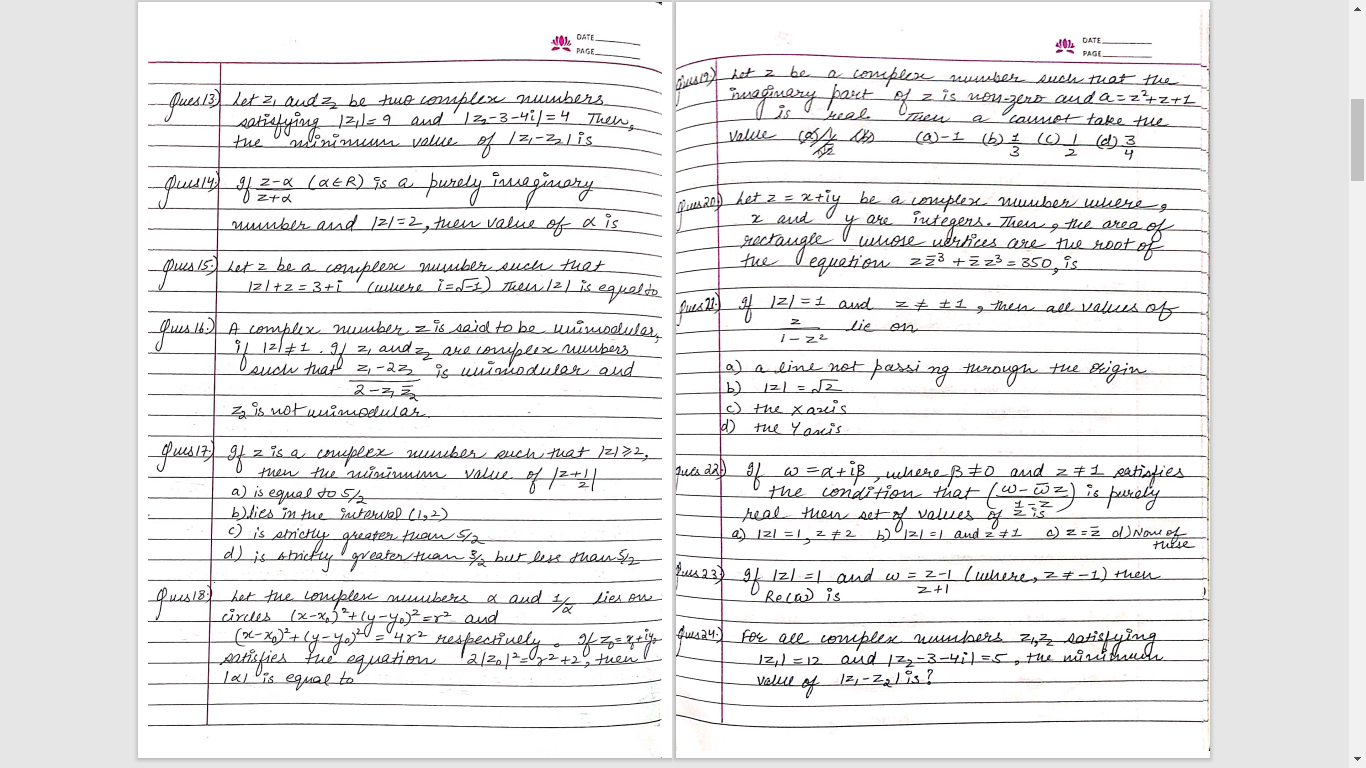 DATE
PAGE
Ques13) Let z₁ and z₂ be two complex numbers
satisfying |z₁|=9 and |z₂-3-4i|=4 Then,
the minimum value of |z₁-z₂| is
Ques14) If z-α/z+α (α∈R) is a purely imaginary
number and |z|=2, then value of α is
Ques15) Let z be a complex number such that
|z|+z=3+i (where i=√-1) Then |z| is equal to
Ques16:) A complex number z is said to be unimodular,
if |z|≠1. If z₁ and z₂ are complex numbers
such that z₁-2z₂/2-z₁z̅₂ is unimodular and
z₂ is not unimodular.
Ques17) If z is a complex number such that |z|≥2,
then the minimum value of |z+1/2|
a) is equal to 5/2
b) lies in the interval (1,2)
c) is strictly greater than 5/2
d) is strictly greater than 3/2 but less than 5/2
Ques18:) Let the complex numbers α and 1/α̅ lies on
circles (x-x₀)²+(y-y₀)²=r² and
(x-x₀)²+(y-y₀)²=4r² respectively. If z₀=x₀+iy₀
satisfies the equation 2|z₀|²=r²+2, then
|α| is equal to
DATE
PAGE
Ques19:) Let z be a complex number such that the
imaginary part of z is non-zero and a=z²+z+1
is real Then a cannot take the
value (a)-1 (b) 1/3 (c) 1/2 (d) 3/4
Ques20:) Let z=x+iy be a complex number where,
x and y are integers. Then, the area of
rectangle whose vertices are the root of
the equation zz̅³+z̅z³=350, is
Ques21:) If |z|=1 and z≠±1, then all values of
z/1-z² lie on
a) a line not passing through the origin
b) |z|=√2
c) the X axis
d) the Y axis
Ques22:) If ω=α+iβ, where β≠0 and z≠1 satisfies
the condition that (ω-ω̅z/1-z) is purely
real then set of values of z is
a) |z|=1, z≠2 b) |z|=1 and z≠1 c) z=z̅ d) None of
these
Ques23:) If |z|=1 and ω=z-1/z+1 (where, z≠-1) then
Re(ω) is
Ques24:) For all complex numbers z₁,z₂ satisfying
|z₁|=12 and |z₂-3-4i|=5, the minimum
value of |z₁-z₂| is?